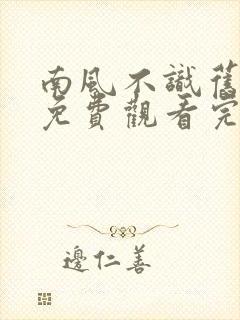 南風不識舊
免費觀看完
邊仁善